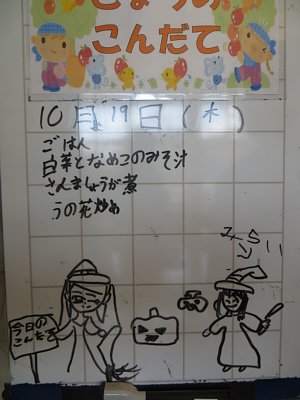 きょうの
こんだて
10月19日(木)
ごはん
白菜となめこのみそ汁
さんましょうが煮
うの花炒め
今日の
こんだて